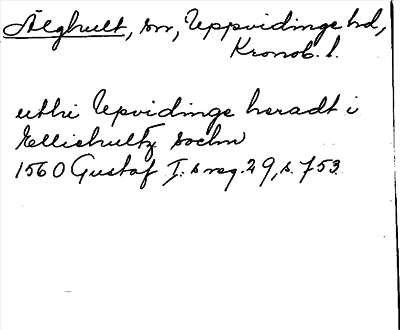 Älghult, sn, Uppvidinge hd,
Kronob. l.
uthi Upvidinge heradt i
Ellishultz sochn
1560 Gustaf I:s reg. 29, s. 753.